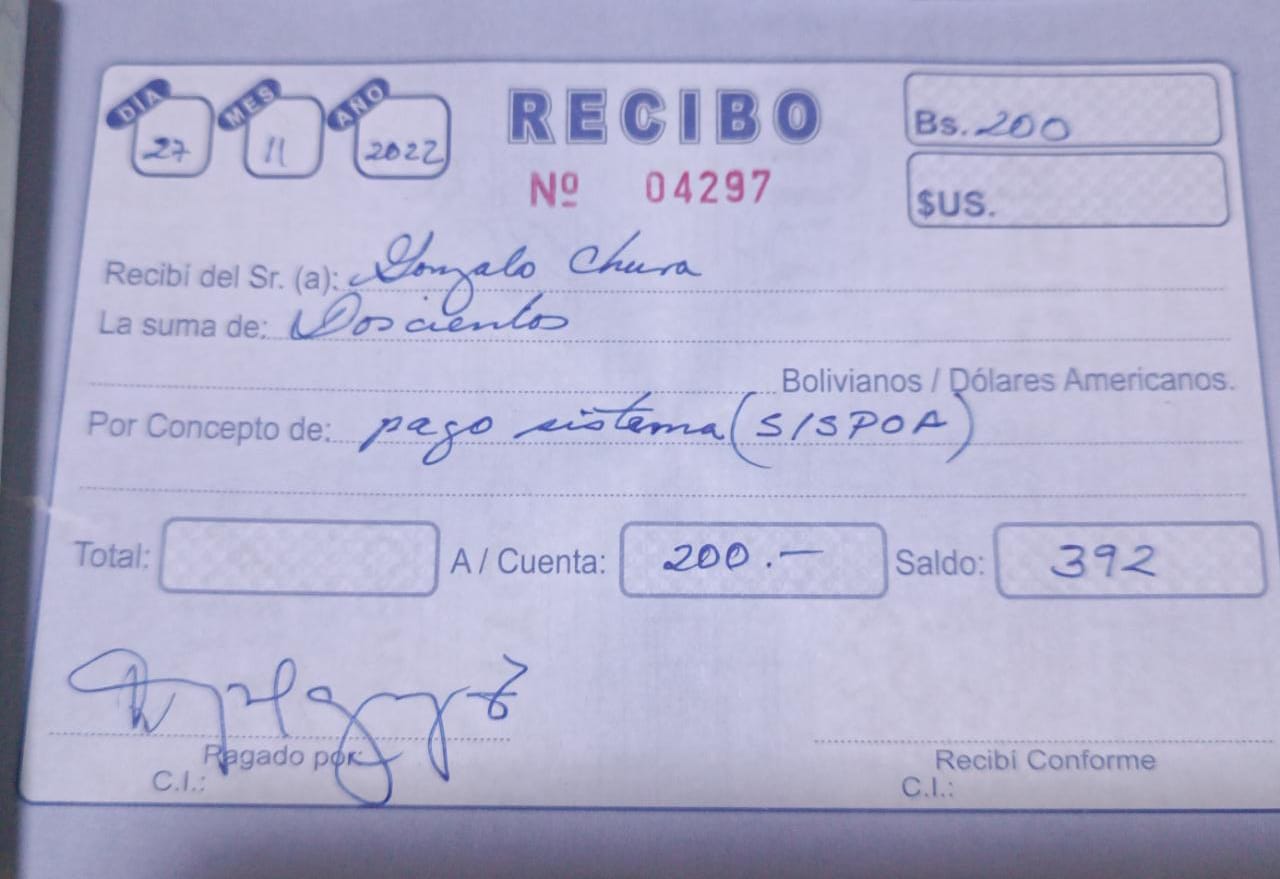 DIA MES AÑO RECIBO Bs. 200
27 11 2022
Nº 04297 $US.
Recibí del Sr. (a): Gonzalo Chura
La suma de: Doscientos
Bolivianos / Dólares Americanos.
Por Concepto de: pago sistema (SISPOA)
Total: A / Cuenta: 200.- Saldo: 392
Pagado por: Recibí Conforme
C.I.: C.I.: